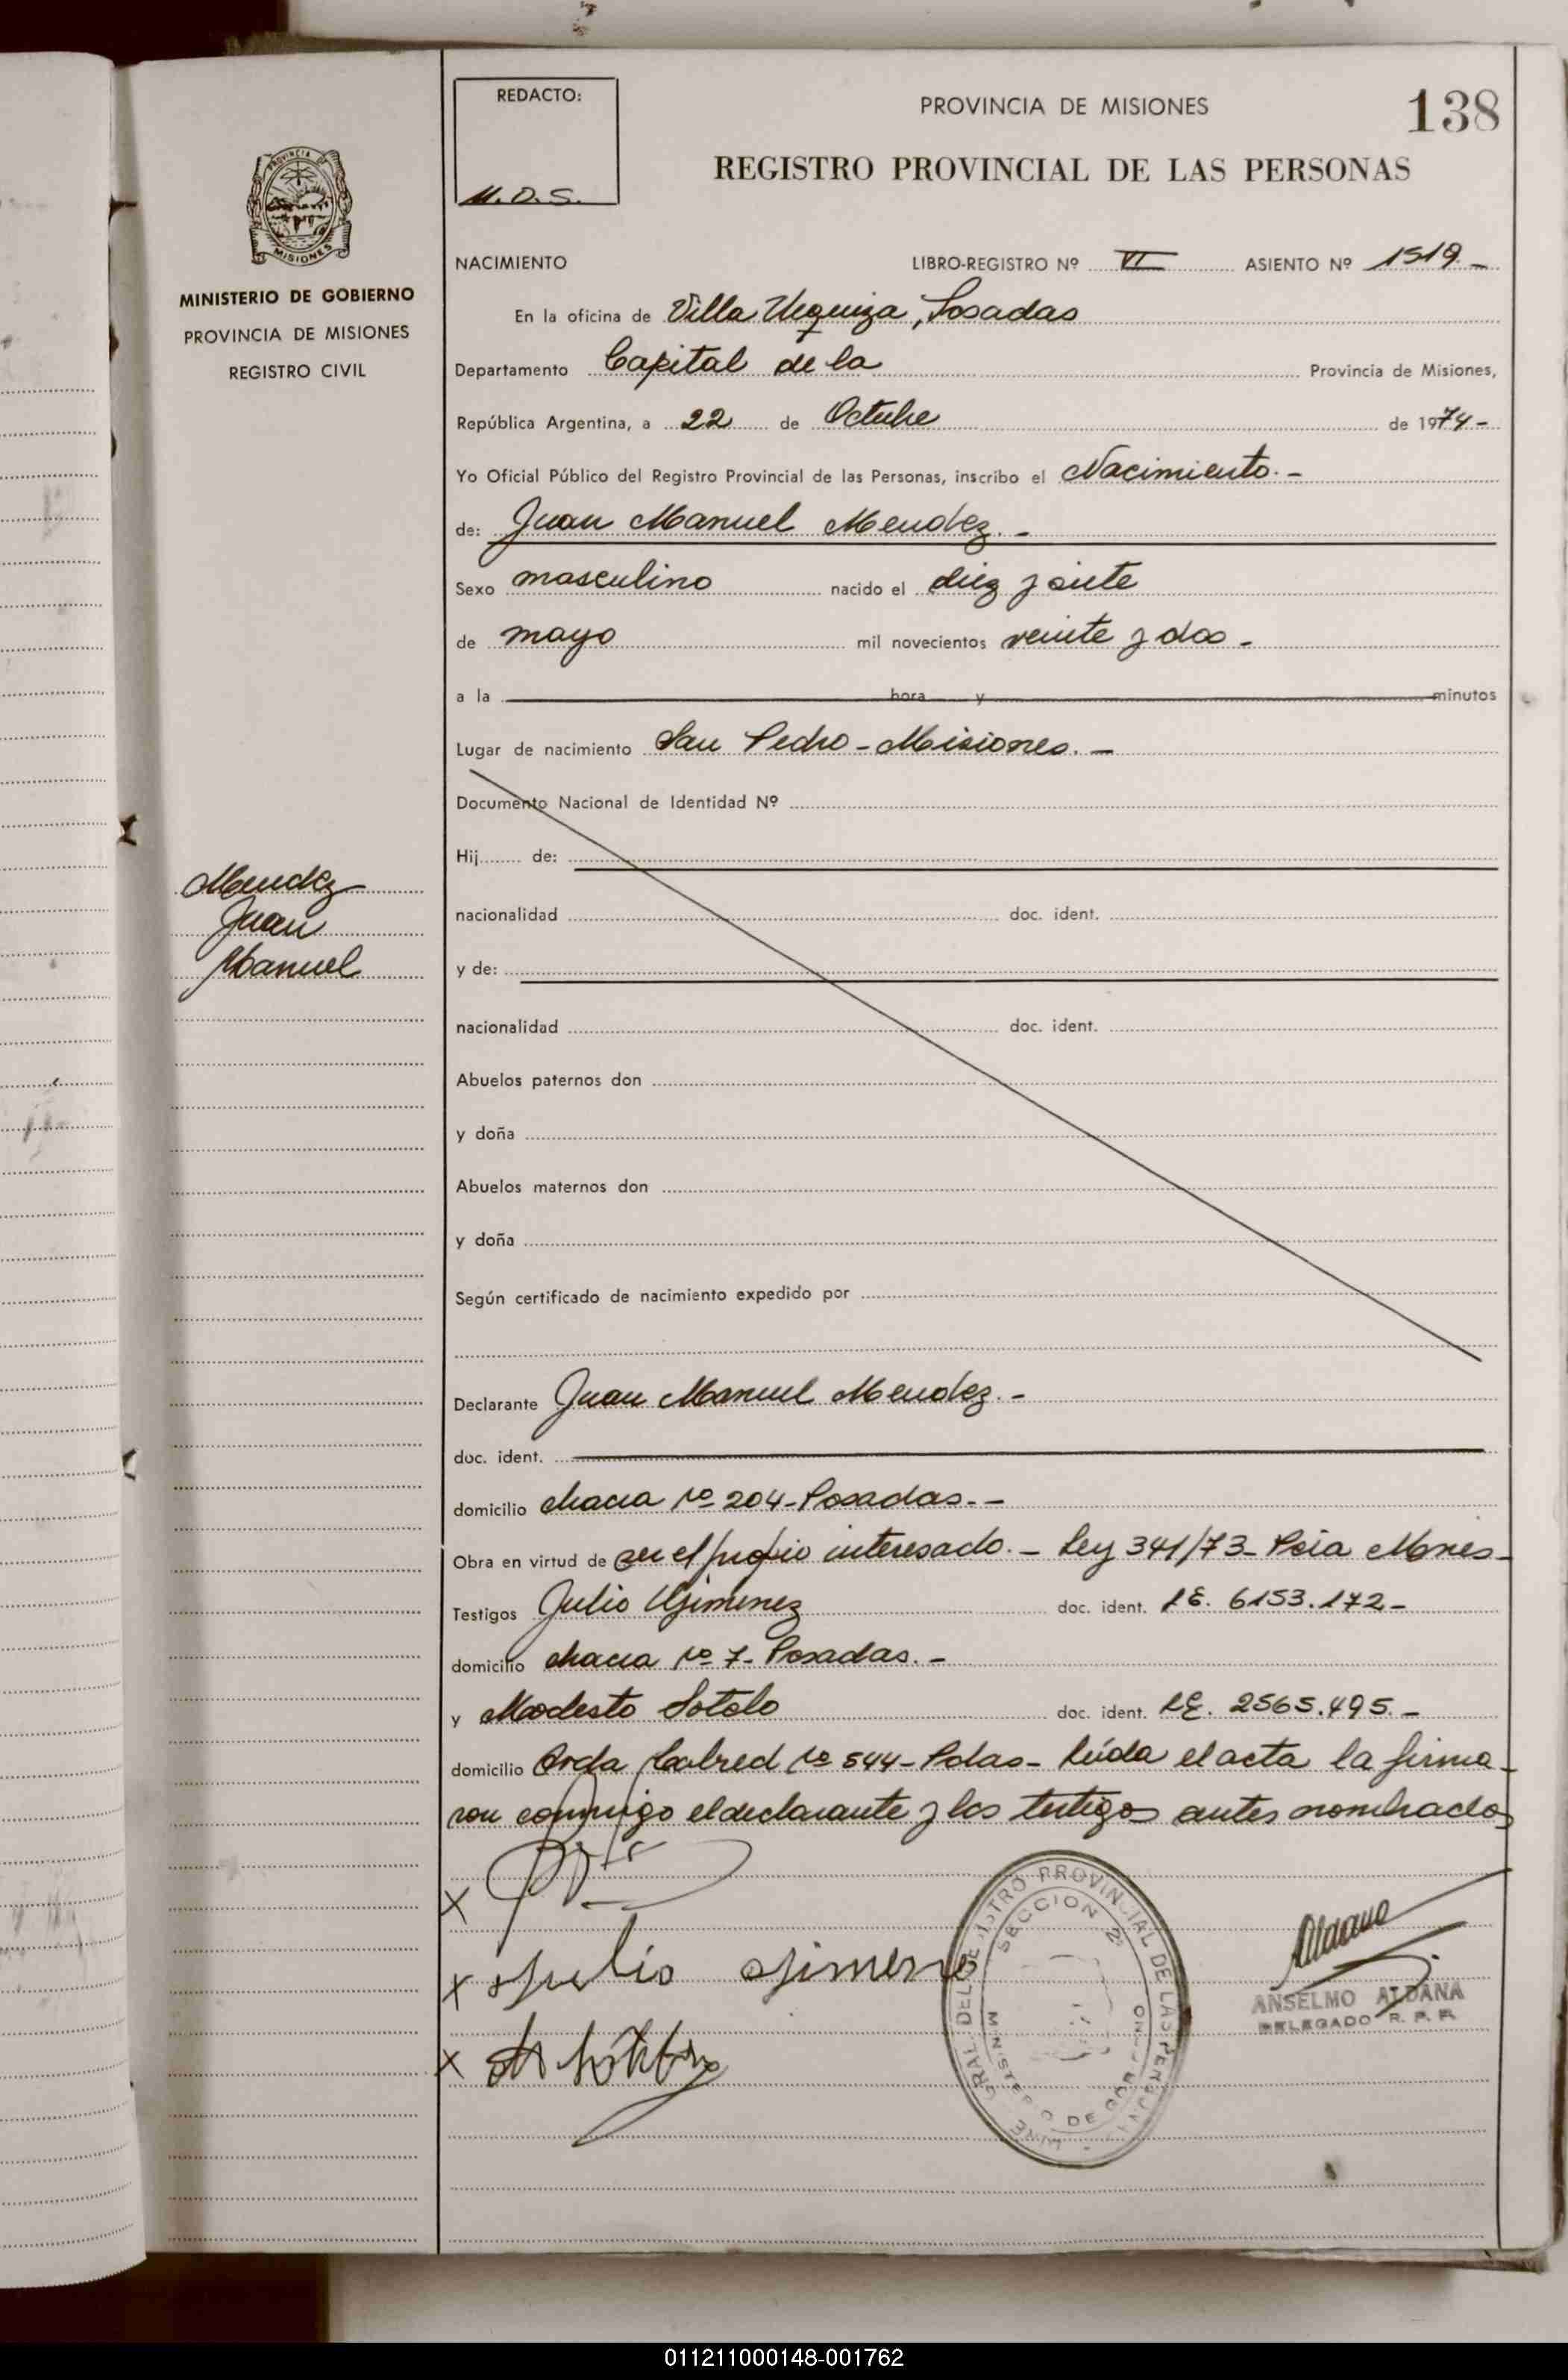 REDACTO:
M.D.S.
PROVINCIA DE MISIONES
138
REGISTRO PROVINCIAL DE LAS PERSONAS
PROVINCIA
MISIONES
MINISTERIO DE GOBIERNO
PROVINCIA DE MISIONES
REGISTRO CIVIL
NACIMIENTO LIBRO-REGISTRO Nº VI ASIENTO Nº 1519.-
En la oficina de Villa Urquiza, Posadas
Departamento Capital de la Provincia de Misiones,
República Argentina, a 22 de Octubre de 1974-
Yo Oficial Público del Registro Provincial de las Personas, inscribo el Nacimiento.-
de: Juan Manuel Mendez.-
Sexo masculino nacido el diez y siete
de mayo mil novecientos veinte y dos-
a la hora y minutos
Lugar de nacimiento San Pedro-Misiones.-
Documento Nacional de Identidad Nº
Hij de:
Mendez
Juan
Manuel
nacionalidad doc. ident.
y de:
nacionalidad doc. ident.
Abuelos paternos don
y doña
Abuelos maternos don
y doña
Según certificado de nacimiento expedido por
Declarante Juan Manuel Mendez.-
doc. ident.
domicilio chacra Nº 204-Posadas.-
Obra en virtud de ser el propio interesado.- Ley 341/73- Pcia Mnes-
Testigos Julio Gimenez doc. ident. LE. 6153.172-
domicilio chacra Nº 7- Posadas.-
y Modesto Sotelo doc. ident. LE. 2565.495.-
domicilio Nº 544-Pdas- leída el acta la firma-
ron conmigo el declarante y los testigos antes nombrados
X
X Julio Gimenez
X
REGISTRO PROVINCIAL DE LAS PERSONAS
SECCION 2
MINISTERIO DE GOBIERNO
Aldana
ANSELMO ALDANA
DELEGADO R. P. P.
011211000148-001762